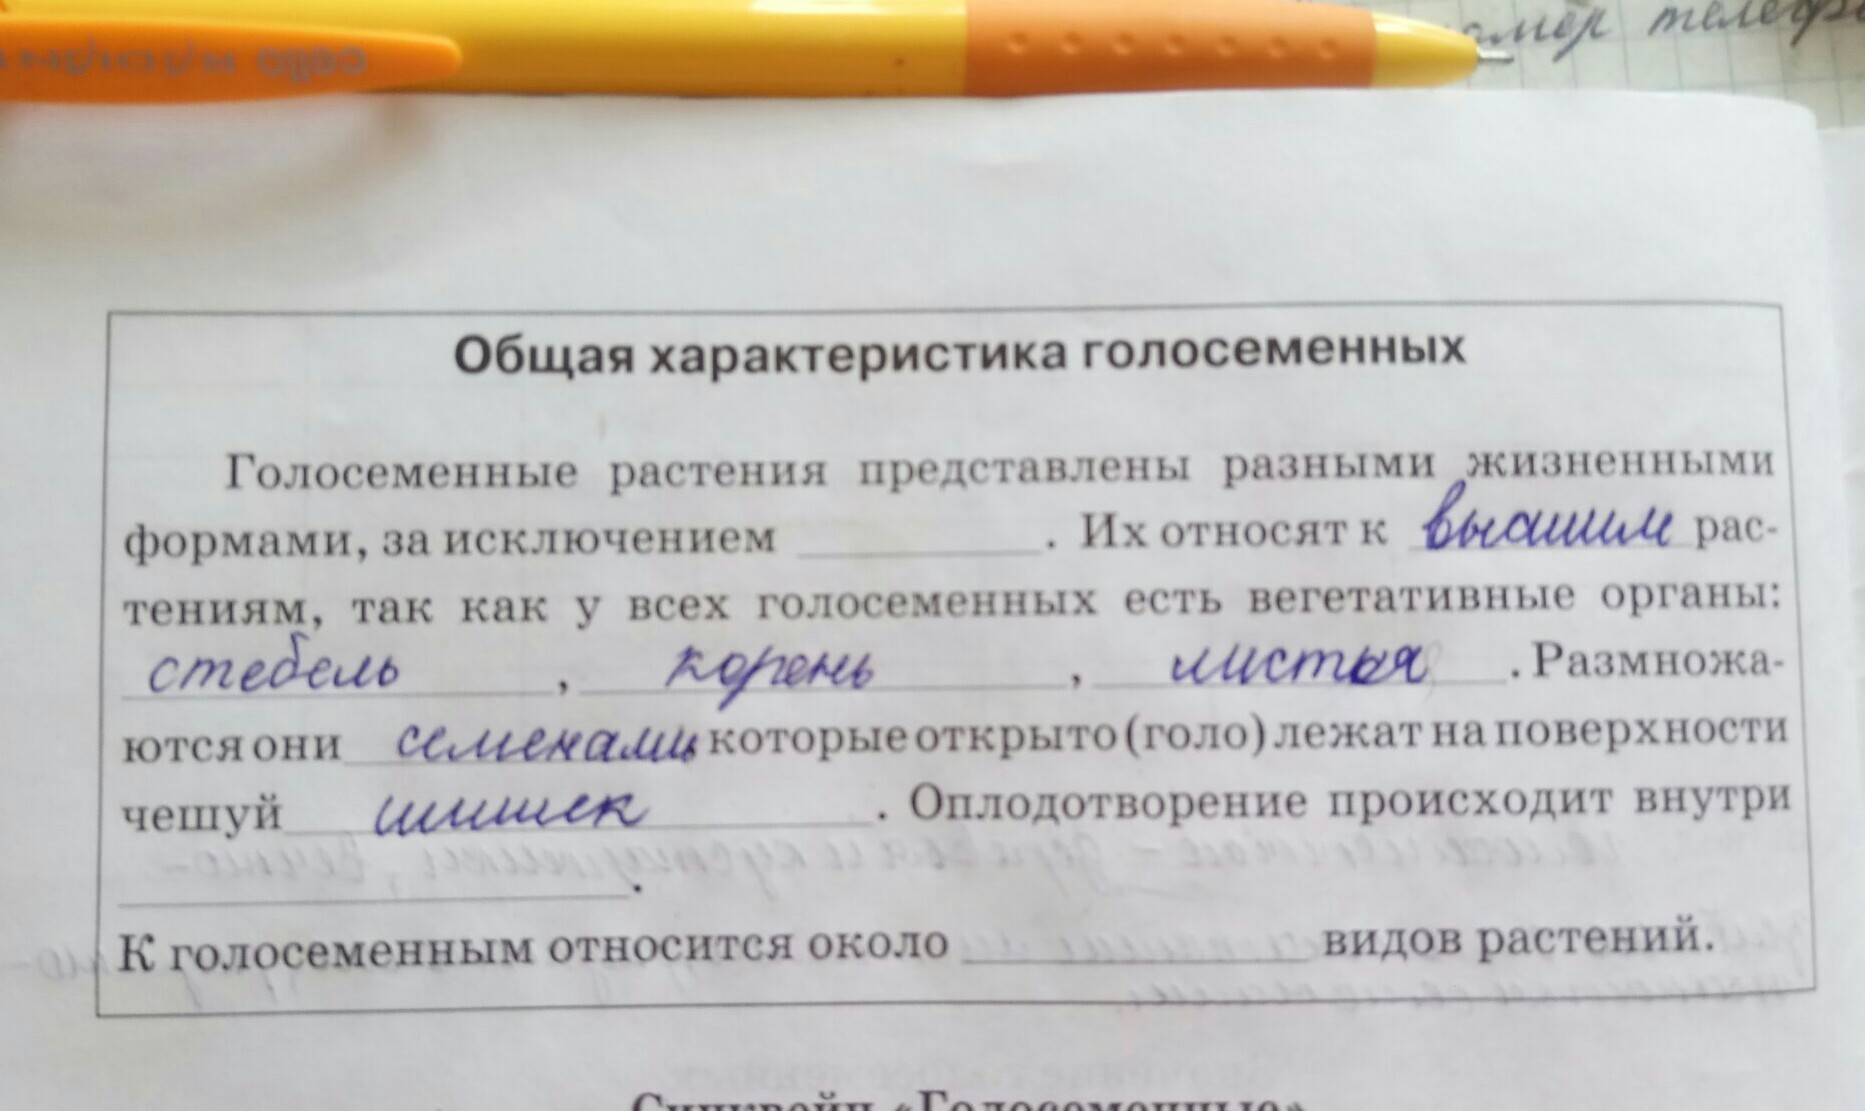 cello
телеф
Общая характеристика голосеменных
Голосеменные растения представлены разными жизненными
формами, за исключением . Их относят к высшим рас-
тениям, так как у всех голосеменных есть вегетативные органы:
стебель , корень , листья . Размножа-
ются они семенами, которые открыто (голо) лежат на поверхности
чешуй шишек . Оплодотворение происходит внутри
.
К голосеменным относится около видов растений.
Синквейн «Голосеменные»